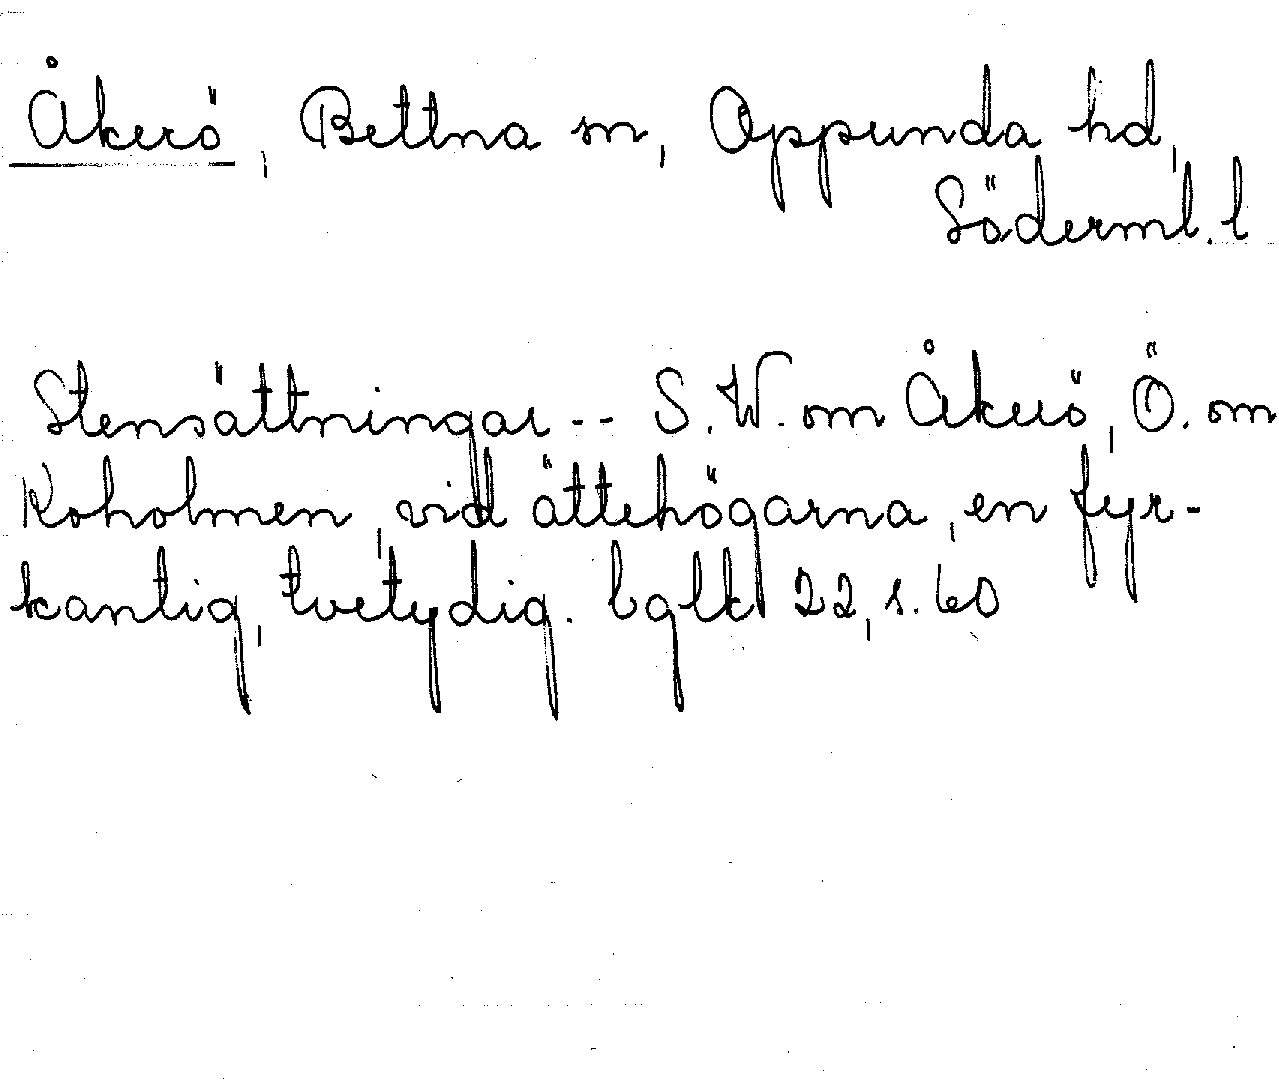 Åkerö, Bettna sn, Oppunda hd,
Söderml. l
Stensättningar -- S.W. om Åkerö, Ö. om
Koholmen, vid ättehögarna, en fyr-
kantig, tvetydig. bglk 22, s. 60